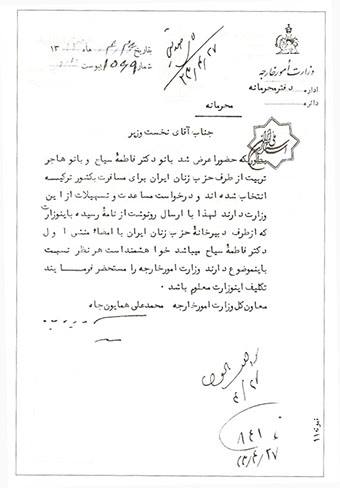 وزارت امور خارجه
اداره دفتر محرمانه
دائره
بتاریخ ماه ۱۳
شماره ۱۰۵۹ پیوست
۲۳/۴/۲۷
محرمانه
جناب آقای نخست وزیر
بطوریکه حضورا عرض شد بانو دکتر فاطمهٔ سیاح و بانو هاجر
تربیت از طرف حزب زنان ایران برای مسافرت بکشور ترکیه
انتخاب شده اند و درخواست مساعدت و تسهیلات از این
وزارت دارند لهذا با ارسال رونوشت از نامهٔ رسیده باینوزارت
که از طرف دبیرخانهٔ حزب زنان ایران با امضاء منشی اول
دکتر فاطمهٔ سیاح میباشد خواهشمند است هر نظر نسبت
باینموضوع دارند وزارت امور خارجه را مستحضر فرمایند
تکلیف اینوزارت معلوم باشد.
معاون کل وزارت امور خارجه محمد علی همایون جاه
۴/۲۷
۸۴۱
۲۳/۴/۲۷
نمونه ۱۱